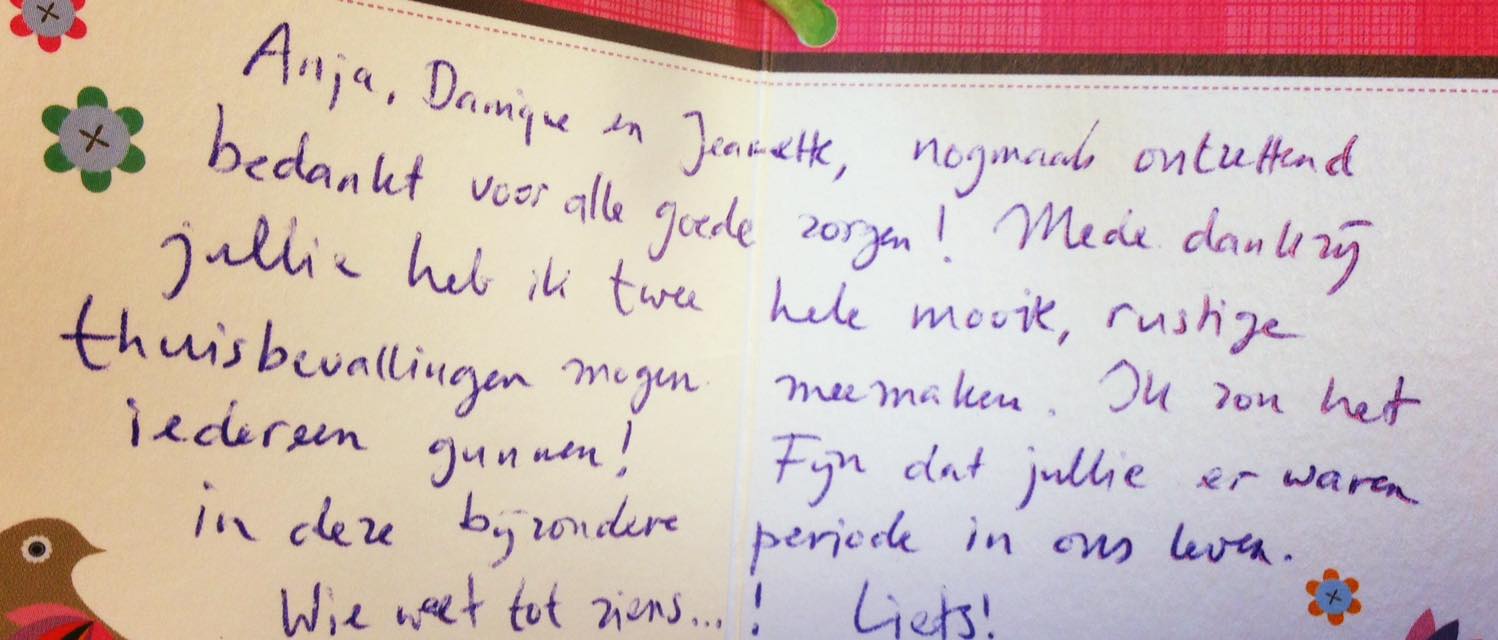 Anja, Danique en Jeanette, nogmaals ontzettend
bedankt voor alle goede zorgen! Mede dankzij
jullie heb ik twee hele mooie, rustige
thuisbevallingen mogen meemaken. Ik zou het
iedereen gunnen! Fijn dat jullie er waren
in deze bijzondere periode in ons leven.
Wie weet tot ziens...! Liefs!